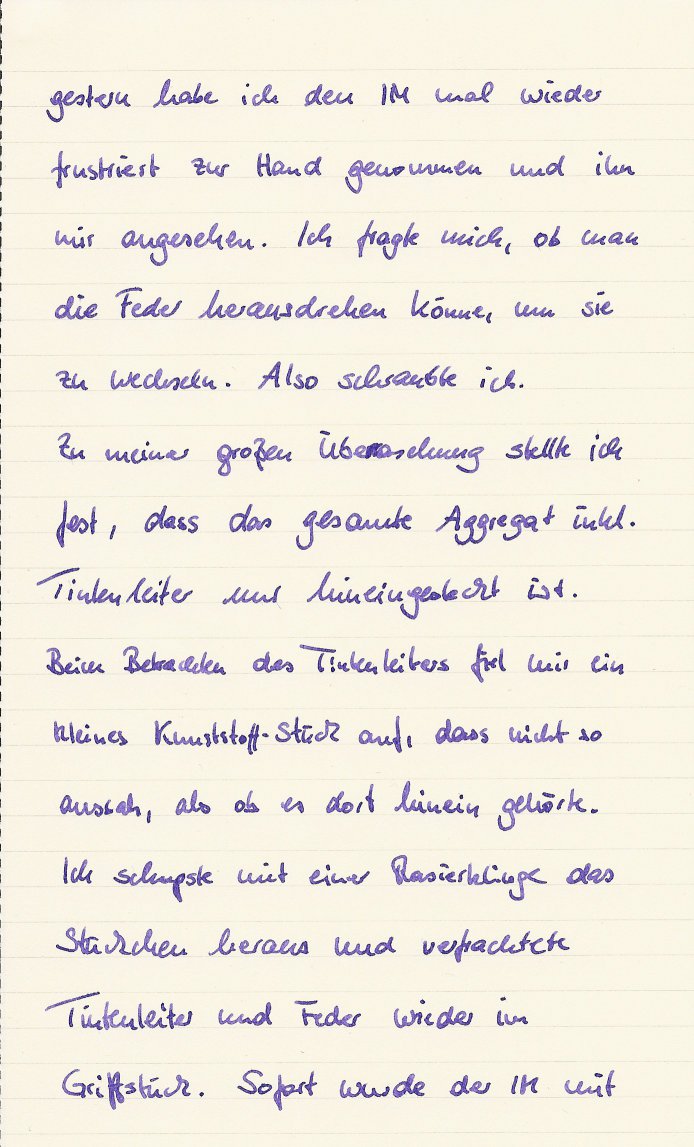 gestern habe ich den IM mal wieder
frustriert zur Hand genommen und ihn
mir angesehen. Ich fragte mich, ob man
die Feder herausdrehen könne, um sie
zu wechseln. Also schraubte ich.
Zu meiner großen Überraschung stellte ich
fest, dass das gesamte Aggregat inkl.
Tintenleiter nur hineingesteckt ist.
Beim Betrachten des Tintenleiters fiel mir ein
kleines Kunststoff-Stück auf, dass nicht so
aussah, als ob es dort hinein gehörte.
Ich schupste mit einer Rasierklinge das
Stückchen heraus und verfrachtete
Tintenleiter und Feder wieder im
Griffstück. Sofort wurde der IM mit